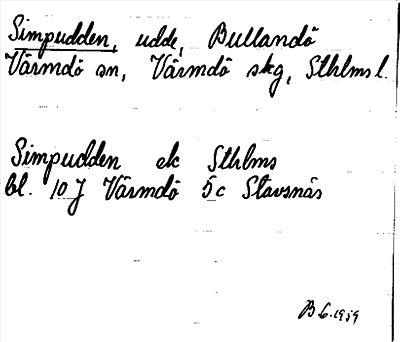 Simpudden, udde, Bullandö
Värmdö sn, Värmdö skg, Sthlms l.
Simpudden ek Sthlms
bl. 10 J Värmdö 5c Stavsnäs
B L. 1959